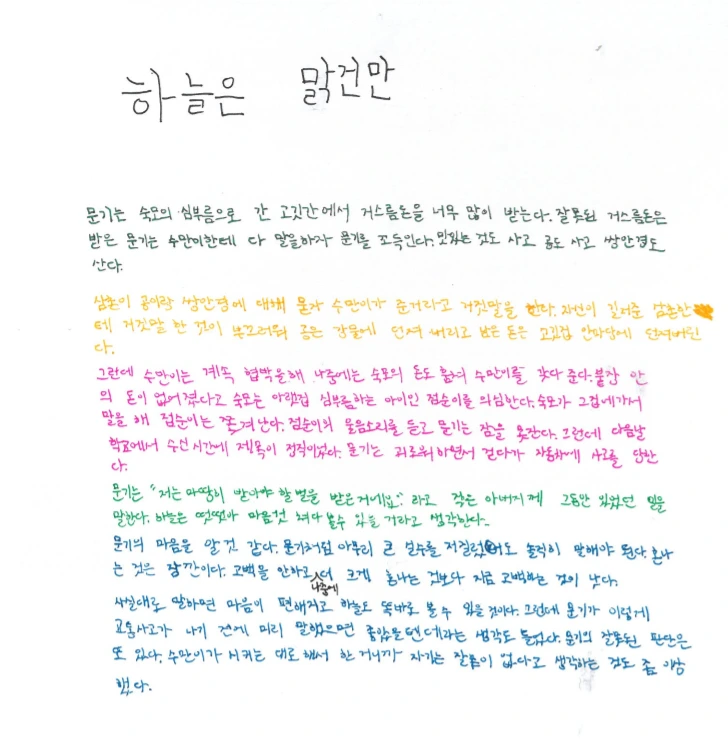 하늘은 맑건만
문기는 숙모의 심부름으로 간 고깃간에서 거스름돈을 너무 많이 받는다. 잘못된 거스름돈은
받은 문기는 수만이한테 다 말을하자 문기를 조득인다. 맛있는 것도 사고 공도 사고 쌍안경도
산다.
삼촌이 공이랑 쌍안경에 대해 묻자 수만이가 준거라고 거짓말을 한다. 자신이 길러준 삼촌한
테 거짓말 한 것이 부끄러워 공은 강물에 던져 버리고 남은 돈은 고깃집 안마당에 던져버린
다.
그런데 수만이는 계속 협박을해 나중에는 숙모의 돈도 훔쳐 수만이를 갖다 준다. 붙장 안
의 돈이 없어졌다고 숙모는 아랫집 심부름하는 아이인 점순이를 의심한다. 숙모가 그집에가서
말을 해 점순이는 쫓겨난다. 점순이의 울음소리를 듣고 문기는 잠을 못잔다. 그런데 다음날
학교에서 수신시간에 제목이 정직이었다. 문기는 괴로워하면서 걷다가 자동차에 사고를 당한
다.
문기는 "저는 마땅히 받아야 할 벌을 받은거예요." 라고 작은 아버지께 그동안 있었던 일을
말한다. 하늘은 떳떳이 마음껏 쳐다 볼수 있을 거라고 생각한다.
문기의 마음을 알 것 같다. 문기처럼 아무리 큰 실수를 저질렀어도 솔직히 말해야 된다. 혼나
는 것은 잠깐이다. 고백을 안하고 나중에 더 크게 혼나는 것보다 지금 고백하는 것이 낫다.
사실대로 말하면 마음이 편해지고 하늘도 똑바로 볼 수 있을 것이다. 그런데 문기가 이렇게
교통사고가 나기 전에 미리 말했으면 좋았을텐데라는 생각도 들었다. 문기의 잘못된 판단은
또 있다. 수만이가 시키는 대로 해서 한 거니까 자기는 잘못이 없다고 생각하는 것도 좀 이상
했다.